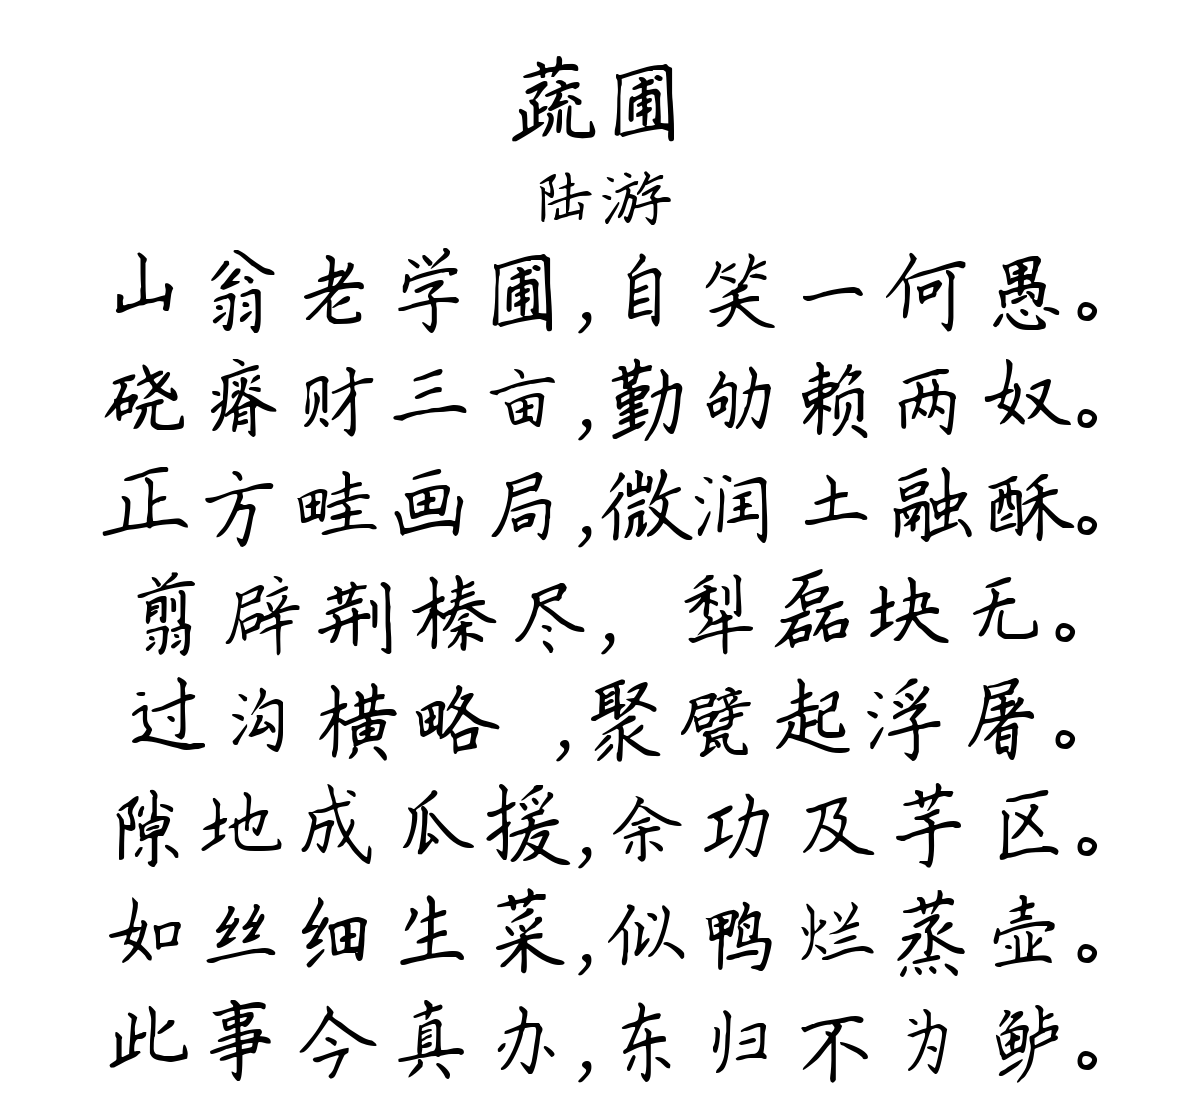 蔬圃
陆游
山翁老学圃,自笑一何愚。
硗瘠财三亩,勤劬赖两奴。
正方畦画局,微润土融酥。
剪辟荆榛尽,犁磊块无。
过沟横略,聚甓起浮屠。
隙地成瓜援,余功及芋区。
如丝细生菜,似鸭烂蒸壶。
此事今真办,东归不为鲈。